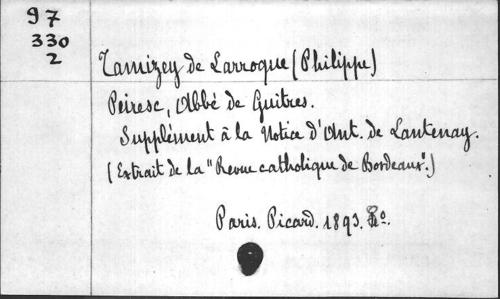 97
330
2
Tamizey de Larroque (Philippe)
Peiresc, Abbé de Guitres.
Supplément à la Notice d'Ant. de Lantenay.
(Extrait de la "Revue catholique de Bordeaux".)
Paris. Picard. 1893. 8º.